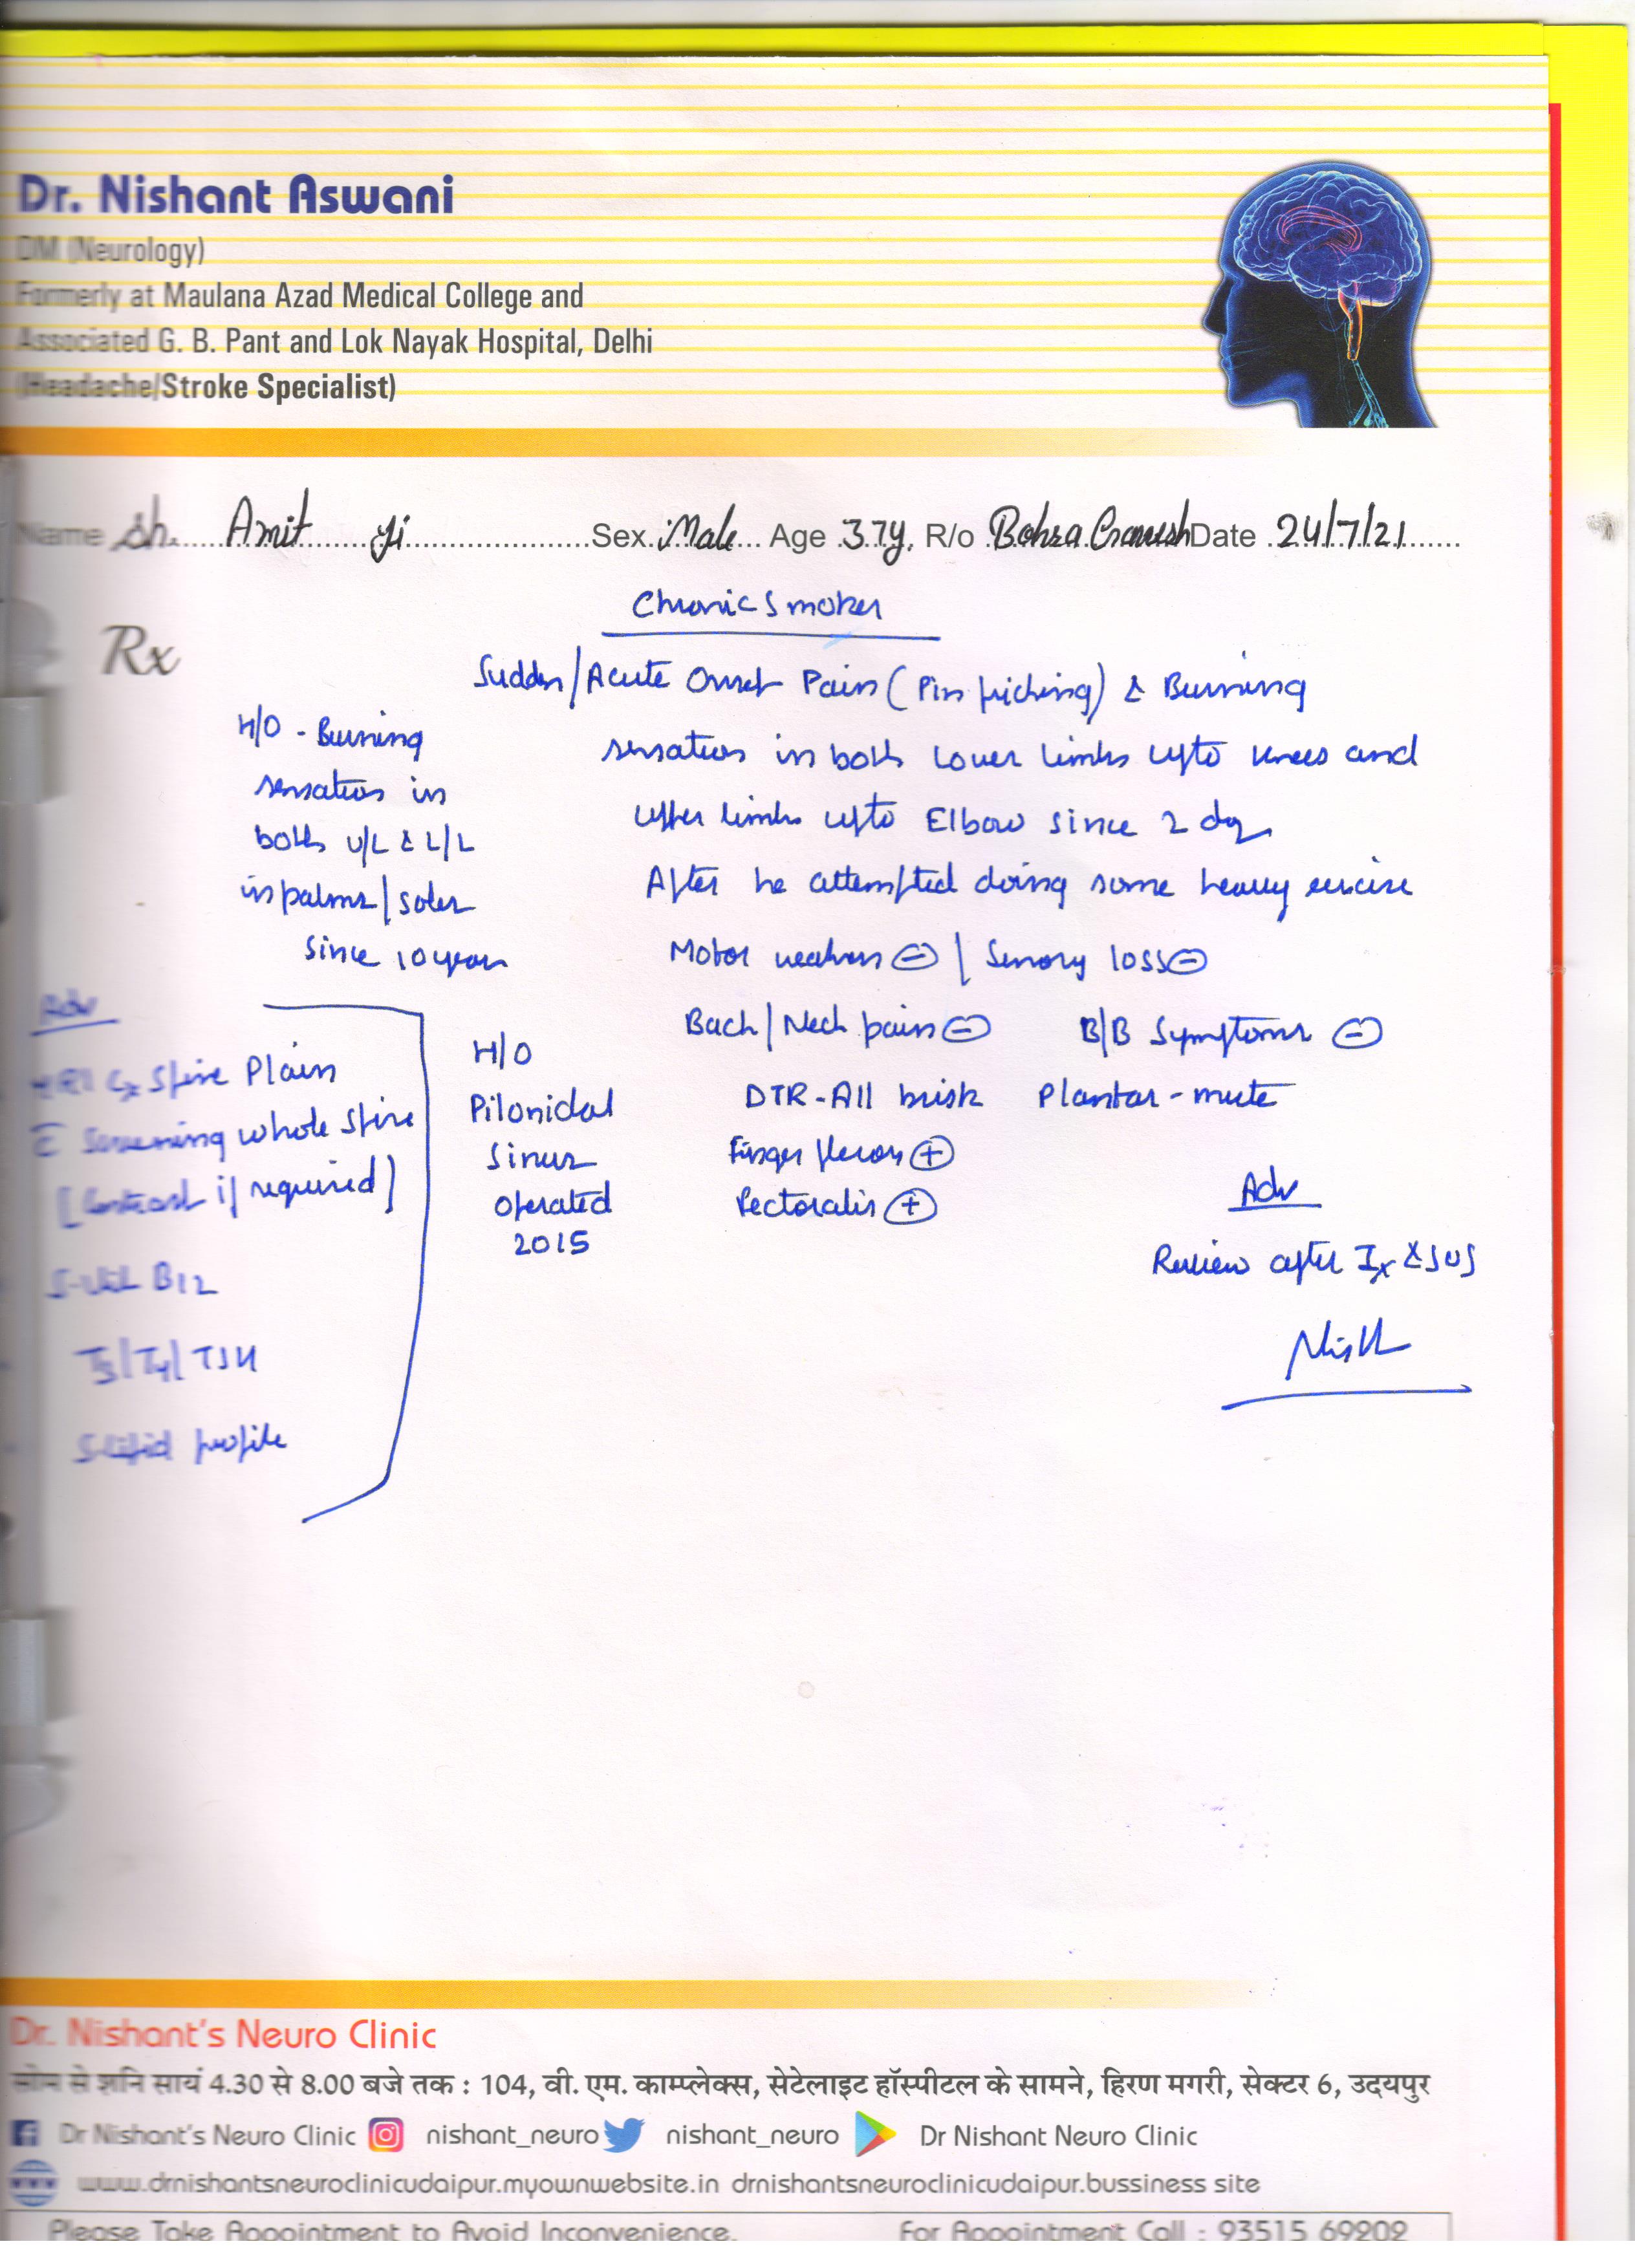 Dr. Nishant Aswani
DM (Neurology)
Formerly at Maulana Azad Medical College and
Associated G. B. Pant and Lok Nayak Hospital, Delhi
(Headache/Stroke Specialist)
Name Sh. Amit Ji Sex Male Age 37y, R/o Bohra Ganesh Date 24/7/21
Chronic Smoker
Rx
Sudden/Acute Onset Pain (Pin pricking) & Burning
sensation in both Lower limbs upto knees and
upper limbs upto Elbow since 2 day
After he attempted doing some heavy exercise
Motor weakness ⊖ / Sensory loss ⊖
Back/Neck pain ⊖ B/B Symptoms ⊖
DTR-All brisk Plantar-mute
Finger flexors ⊕
Pectoralis ⊕
H/O - Burning
sensation in
both U/L & L/L
in palms/soles
since 10 years
H/O
Pilonidal
Sinus
operated
2015
Adv
MRI Cx Spine Plain
c̅ Screening whole spine
[Contrast if required]
S-Vit B12
T3/T4/TSH
S-lipid profile
Adv
Review after Ix & SOS
Dr. Nishant's Neuro Clinic
सोम से शनि सायं 4.30 से 8.00 बजे तक : 104, वी. एम. काम्प्लेक्स, सेटेलाइट हॉस्पीटल के सामने, हिरण मगरी, सेक्टर 6, उदयपुर
Dr Nishant's Neuro Clinic nishant_neuro nishant_neuro Dr Nishant Neuro Clinic
www.drnishantsneuroclinicudaipur.myownwebsite.in drnishantsneuroclinicudaipur.bussiness site
Please Take Appointment to Avoid Inconvenience. For Appointment Call : 93515 69202